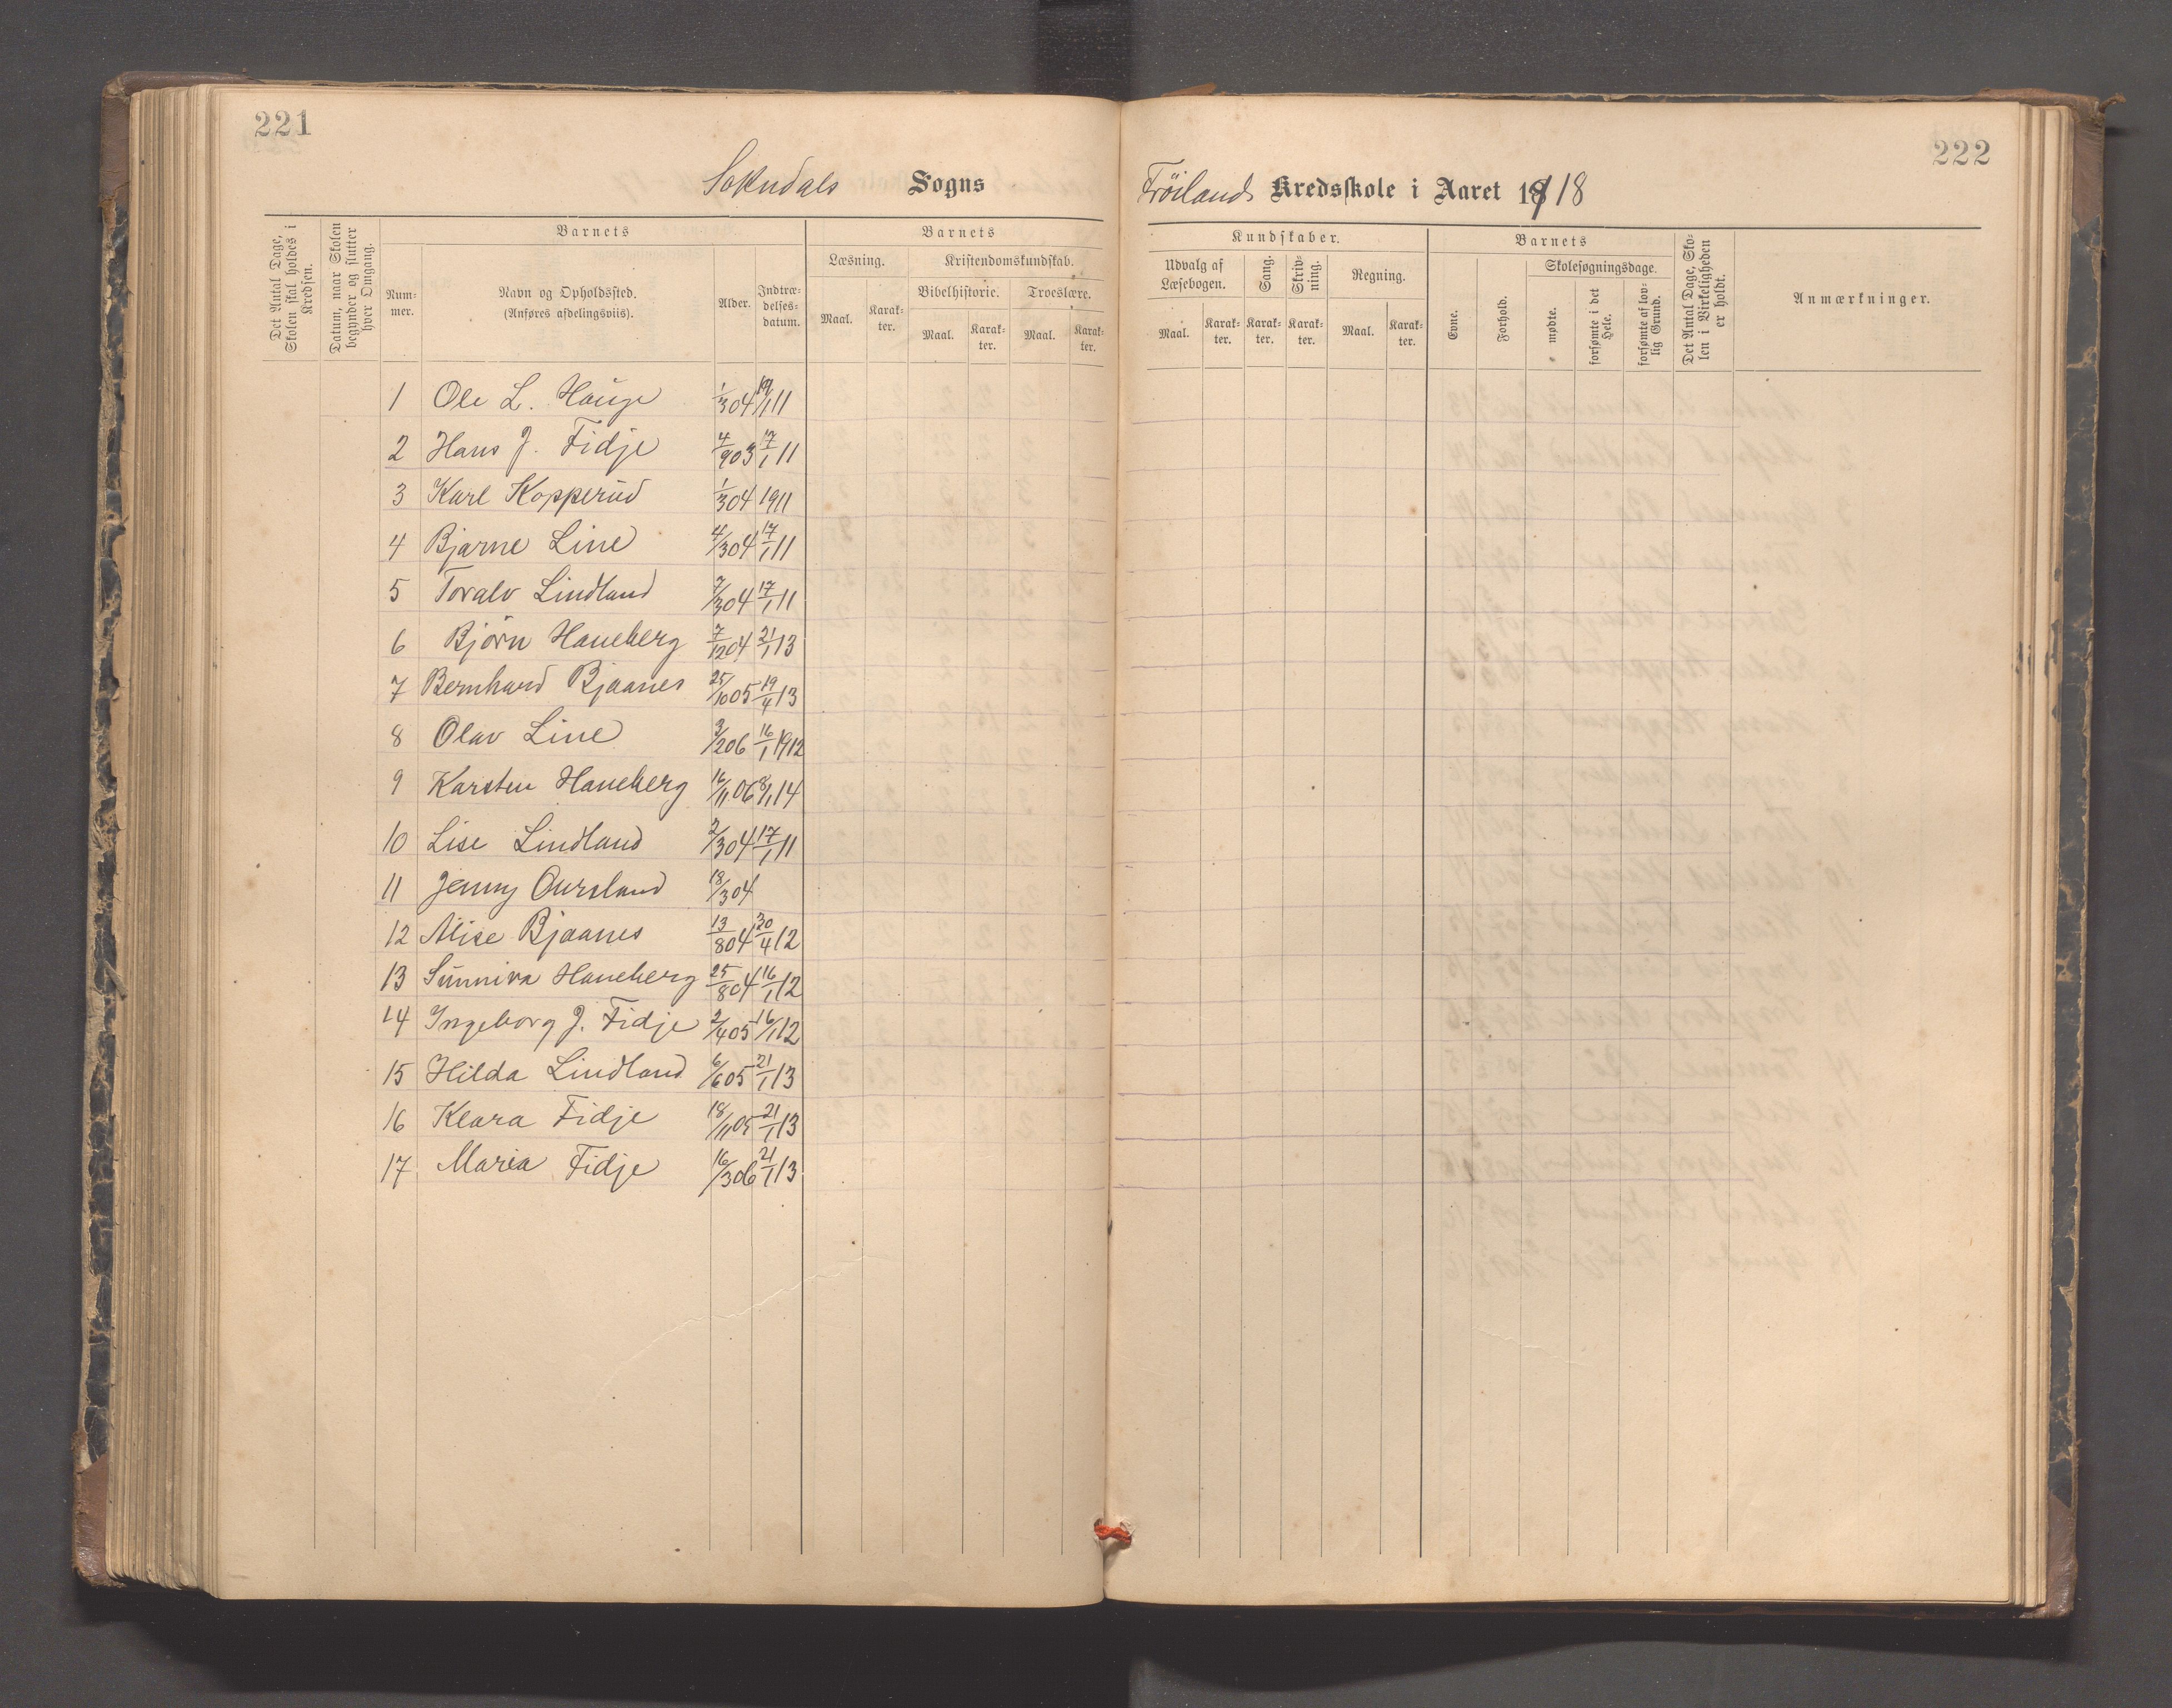 221
222
Sokndals Sogns
Frøilands Kredsskole i Aaret 1918
Det Antal Dage, Skolen skal holdes i Kredsen.
Datum, naar Skolen begynder og slutter hver Omgang.
Barnets
Nummer.
Navn og Opholdssted.
(Anføres afdelingsviis).
Alder.
Indtrædelsesdatum.
Barnets
Læsning.
Maal.
Karakter.
Kristendomskundskab.
Bibelhistorie.
Maal.
Karakter.
Troeslære.
Maal.
Karakter.
Kundskaber.
Udvalg af Læsebogen.
Maal.
Karakter.
Sang.
Karakter.
Skrivning.
Karakter.
Regning.
Maal.
Karakter.
Barnets
Evne.
Forhold.
Skolesøgningsdage.
mødte.
forsømte i det Hele.
forsømte af lovlig Grund.
Det Antal Dage, Skolen i Virkeligheden er holdt.
Anmærkninger.
1 Ole L. Hauge 1/3 04 19/1 11
2 Hans J. Fidje 4/9 03 17/1 11
3 Karl Kopperud 1/3 04 1911
4 Bjarne Line 4/3 04 17/1 11
5 Toralv Lindland 7/3 04 17/1 11
6 Bjørn Haneberg 7/12 04 21/1 13
7 Bernhard Bjaanes 25/10 05 19/4 13
8 Olav Line 3/2 06 16/1 1912
9 Karsten Haneberg 16/11 06 8/1 14
10 Lise Lindland 2/3 04 17/1 11
11 Jenny 18/3 04
12 Alise Bjaanes 13/8 04 20/4 12
13 Sunniva Haneberg 25/8 04 16/1 12
14 Ingeborg J. Fidje 2/4 05 16/1 12
15 Hilda Lindland 6/6 05 21/1 13
16 Klara Fidje 18/11 05 21/1 13
17 Maria Fidje 16/3 06 21/1 13